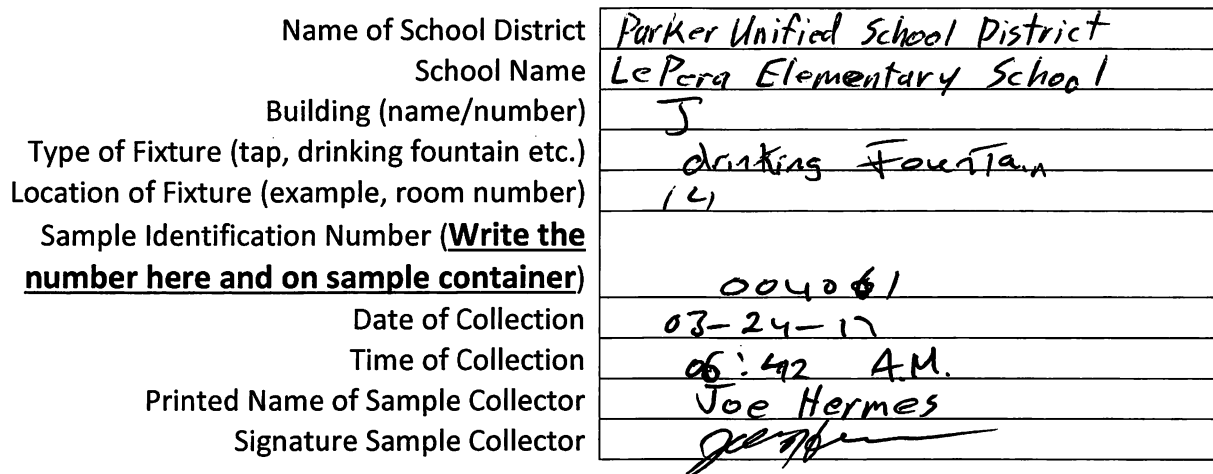 Name of School District Parker Unified School District
School Name LePera Elementary School
Building (name/number) J
Type of Fixture (tap, drinking fountain etc.) drinking Fountain
Location of Fixture (example, room number) 14
Sample Identification Number (Write the
number here and on sample container) 004061
Date of Collection 03-24-17
Time of Collection 06:42 A.M.
Printed Name of Sample Collector Joe Hermes
Signature Sample Collector